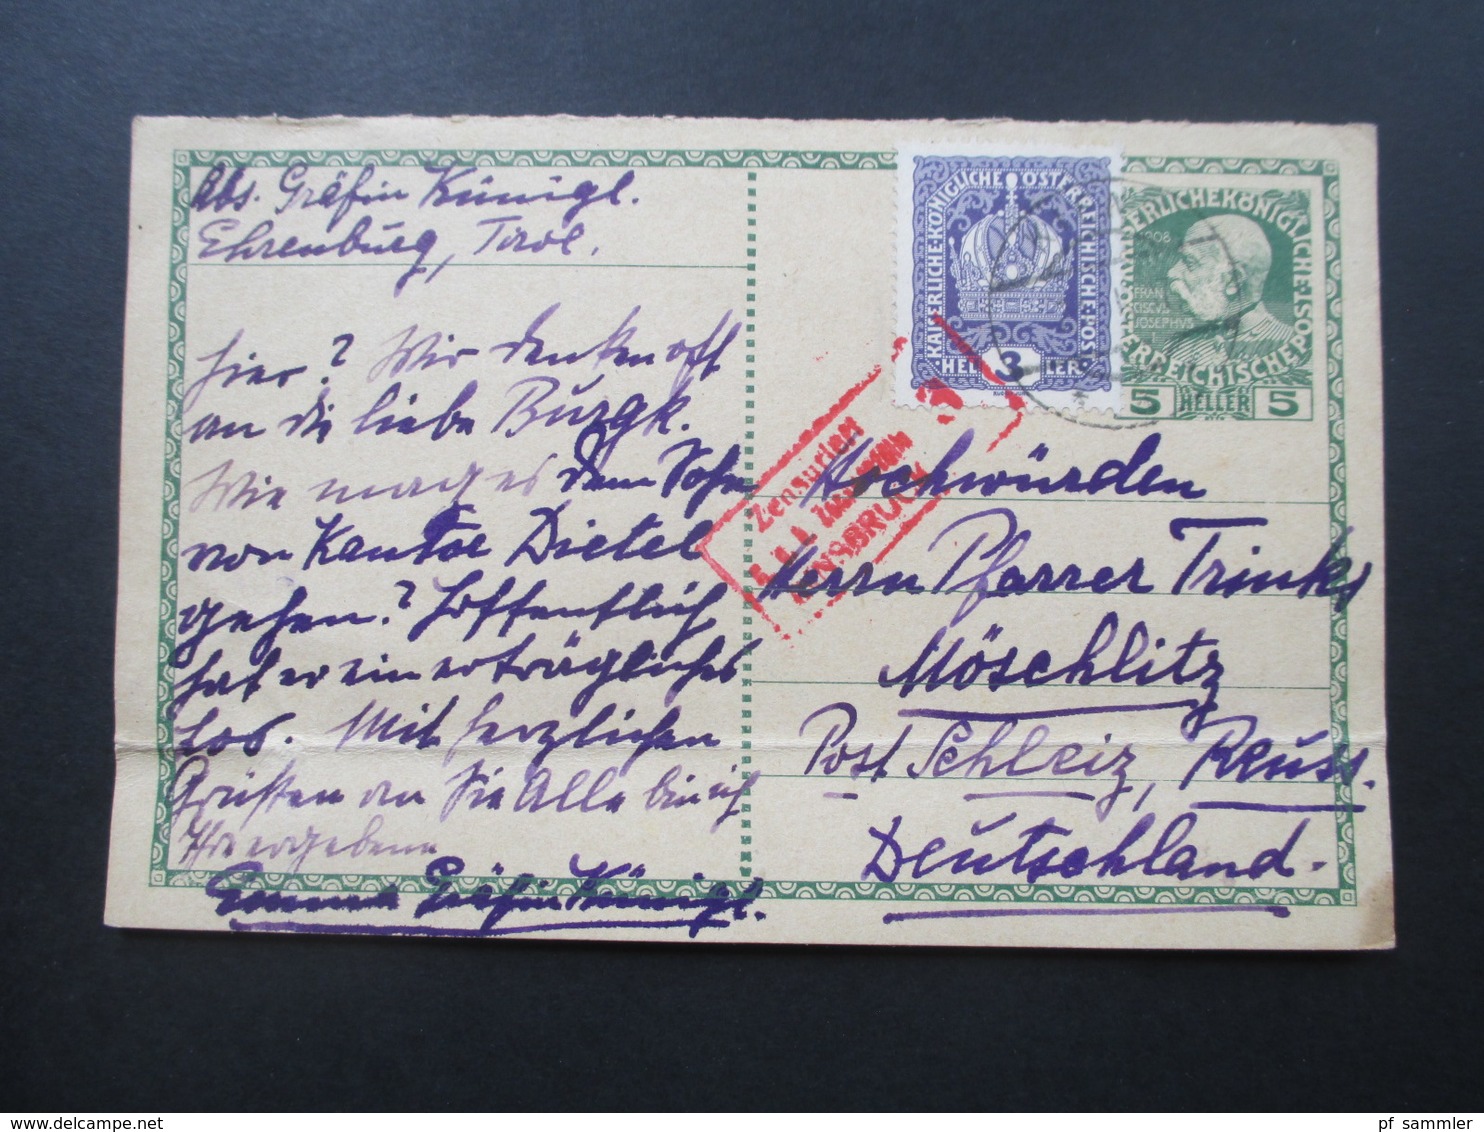 Abs. Gräfin Künigl.
Ehrenburg, Tirol.
hier? Wir denken oft
an die liebe Burgk.
Wie mag es dem Sohn
von Kantor Dietel
gehen? Hoffentlich
hat er ein erträgliches
Los. Mit herzlichen
Grüßen an Sie Alle bin ich
Ihre ergebene
Gräfin Künigl.
KAISERLICHE KÖNIGLICHE ÖSTERREICHISCHE POST
3
HELLER
KAISERLICHE KÖNIGLICHE ÖSTERREICHISCHE POST
1908
FRAN
CISCVS
JOSEPHVS
5 HELLER 5
Zensuriert
INNSBRUCK
Hochwürden
Herrn Pfarrer Trinks
Möschlitz
Post Schleiz, Reuss.
Deutschland.
pf_sammler